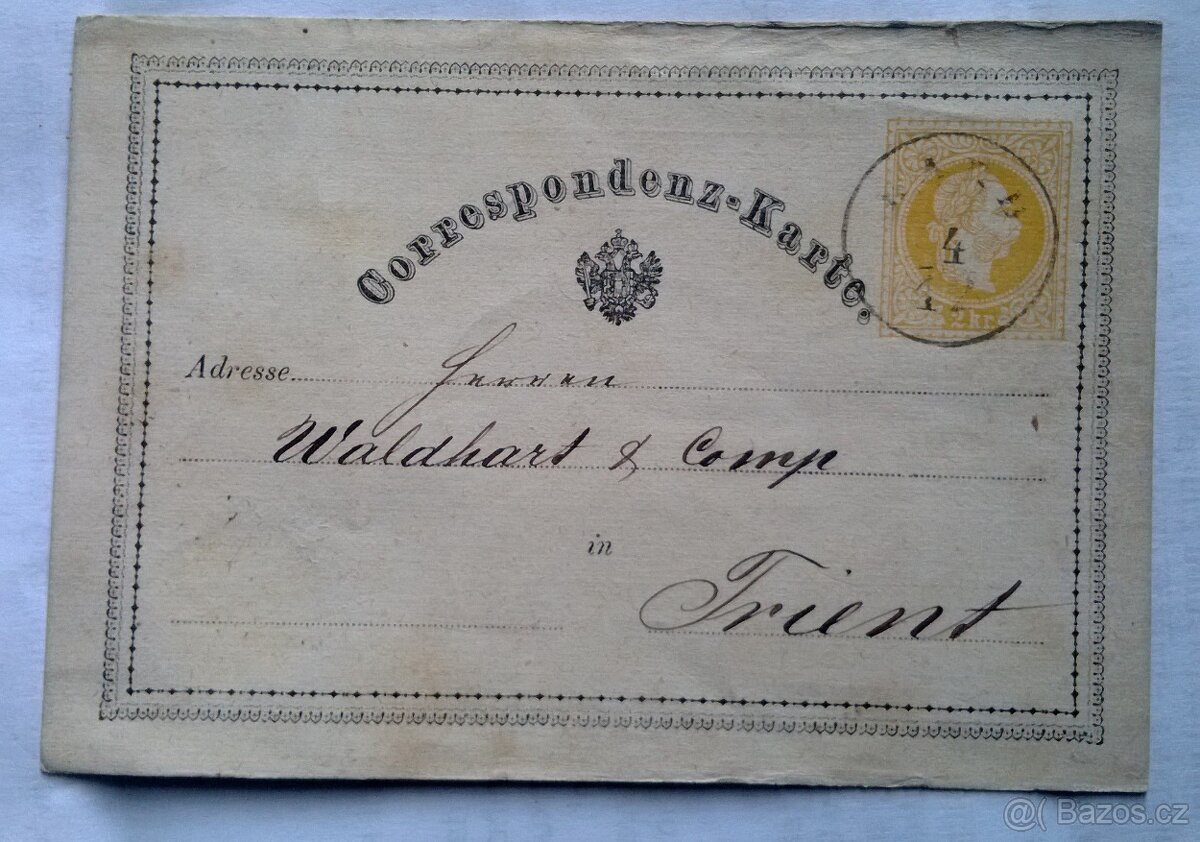 Correspondenz-Karte.
4
2 kr.
Adresse Herren
Waldhart & Comp
in
Trient
@( Bazos.cz